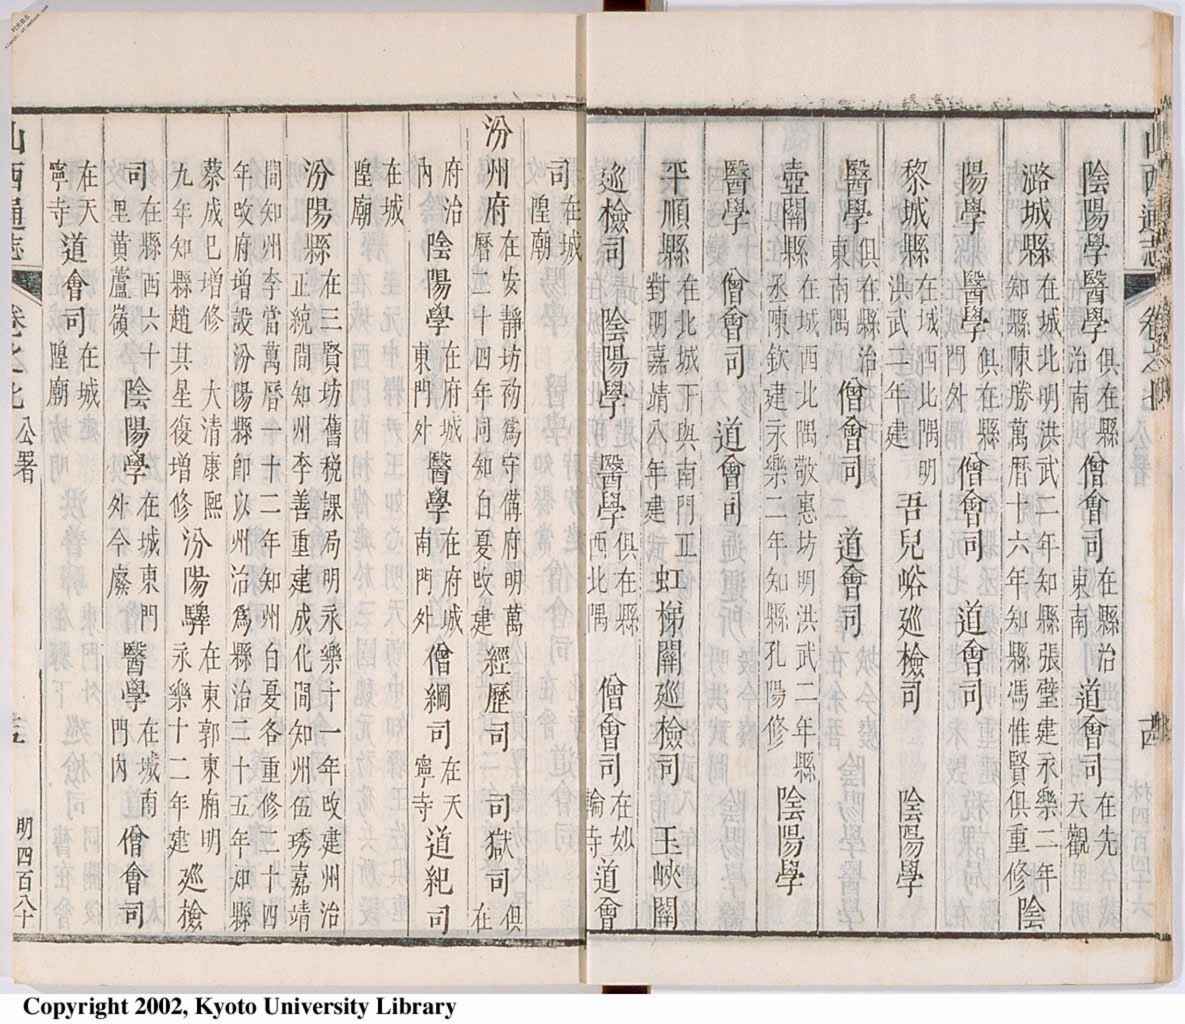 陰陽學醫學俱在縣治南 僧會司在縣治東南 道會司在先天觀
潞城縣在城北明洪武二年知縣張璧建永樂二年知縣陳勝萬曆十六年知縣馮惟賢俱重修 陰
陽學 醫學俱在縣門外 僧會司 道會司
黎城縣在城西北隅明洪武二年建 吾兒峪巡檢司 陰陽學
醫學俱在縣治東南隅 僧會司 道會司
壺關縣在城西北隅敬惠坊明洪武二年縣丞陳欽建永樂二年知縣孔陽修 陰陽學
醫學 僧會司 道會司
平順縣在北城下與南門正對明嘉靖八年建 虹梯關巡檢司 玉峽關
巡檢司 陰陽學 醫學俱在縣西北隅 僧會司在妙輪寺 道會
司在城隍廟
汾州府在安靜坊初為守備府明萬曆二十四年同知白夏改建 經歷司 司獄司俱在
府治內 陰陽學在府城東門外 醫學在府城南門外 僧綱司在天寧寺 道紀司
在城隍廟
汾陽縣在三賢坊舊稅課局明永樂十一年改建州治正統間知州李善重建成化間知州伍琇嘉靖
間知州李當萬曆一十二年知州白夏各重修二十四年改府增設汾陽縣即以州治為縣治三十五年知縣
蔡成巳增修 大清康熙九年知縣趙其星復增修 汾陽驛在東郭東廂明永樂十二年建 巡檢
司在縣西六十里黃蘆嶺 陰陽學在城東門外今廢 醫學在城南門內 僧會司
在天寧寺 道會司在城隍廟
山西通志 卷之七 公署 十五 明四百八十
Copyright 2002, Kyoto University Library